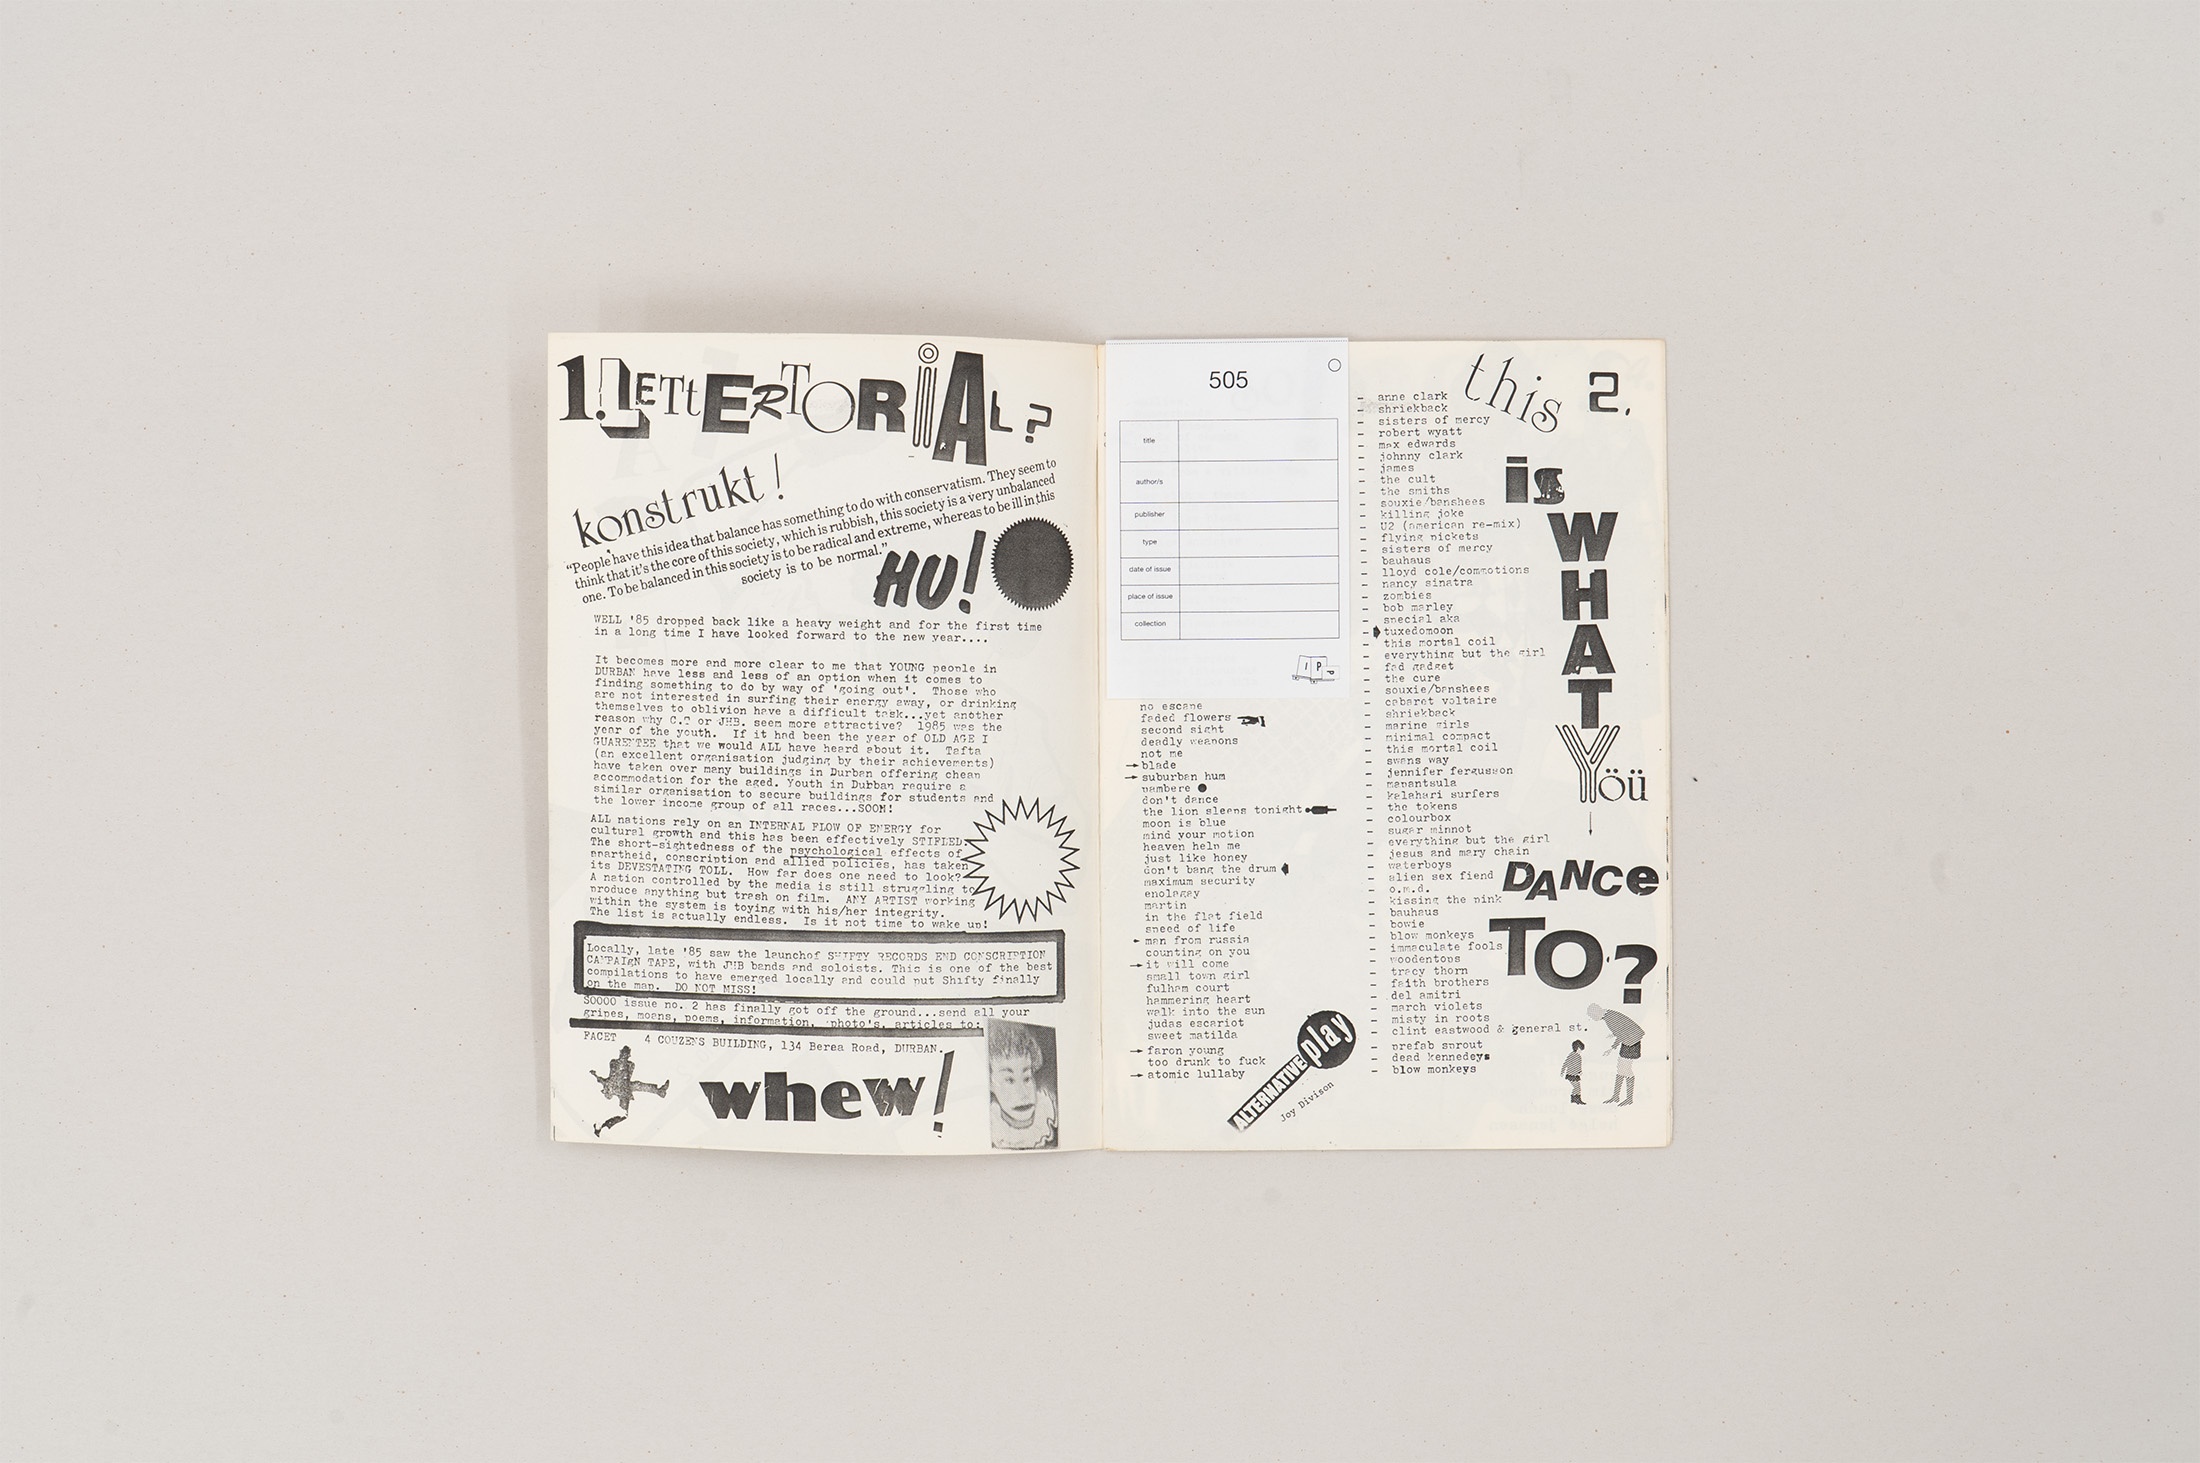 1. LETTERTORIAL?
konstrukt!
"People have this idea that balance has something to do with conservatism. They seem to
think that it's the core of this society, which is rubbish, this society is a very unbalanced
one. To be balanced in this society is to be radical and extreme, whereas to be ill in this
society is to be normal."
HU!
WELL '85 dropped back like a heavy weight and for the first time
in a long time I have looked forward to the new year....
It becomes more and more clear to me that YOUNG people in
DURBAN have less and less of an option when it comes to
finding something to do by way of 'going out'. Those who
are not interested in surfing their energy away, or drinking
themselves to oblivion have a difficult task...yet another
reason why C.T or JHB. seem more attractive? 1985 was the
year of the youth. If it had been the year of OLD AGE I
GUARENTEE that we would ALL have heard about it. Tafta
(an excellent organisation judging by their achievements)
have taken over many buildings in Durban offering cheap
accommodation for the aged. Youth in Durban require a
similar organisation to secure buildings for students and
the lower income group of all races...SOON!
ALL nations rely on an INTERNAL FLOW OF ENERGY for
cultural growth and this has been effectively STIFLED.
The short-sightedness of the psychological effects of
apartheid, conscription and allied policies, has taken
its DEVESTATING TOLL. How far does one need to look?
A nation controlled by the media is still struggling to
produce anything but trash on film. ANY ARTIST working
within the system is toying with his/her integrity.
The list is actually endless. Is it not time to wake up!
Locally, late '85 saw the launchof SHIFTY RECORDS END CONSCRIPTION
CAMPAIGN TAPE, with JHB bands and soloists. This is one of the best
compilations to have emerged locally and could put Shifty finally
on the map. DO NOT MISS!
SOOOO issue no. 2 has finally got off the ground...send all your
gripes, moans, poems, information, photo's, articles to:
FACET 4 COUZENS BUILDING, 134 Berea Road, DURBAN.
whew!
505
title
author/s
publisher
type
date of issue
place of issue
collection
I P P
no escape
faded flowers
second sight
deadly weapons
not me
blade
suburban hum
pambere
don't dance
the lion sleeps tonight
moon is blue
mind your motion
heaven help me
just like honey
don't bang the drum
maximum security
enolagay
martin
in the flat field
speed of life
man from russia
counting on you
it will come
small town girl
fulham court
hammering heart
walk into the sun
judas escariot
sweet matilda
faron young
too drunk to fuck
atomic lullaby
ALTERNATIVE play
Joy Divison
- anne clark
- shriekback
- sisters of mercy
- robert wyatt
- max edwards
- johnny clark
- james
- the cult
- the smiths
- souxie/banshees
- killing joke
- U2 (american re-mix)
- flying pickets
- sisters of mercy
- bauhaus
- lloyd cole/commotions
- nancy sinatra
- zombies
- bob marley
- special aka
- tuxedomoon
- this mortal coil
- everything but the girl
- fad gadget
- the cure
- souxie/banshees
- cabaret voltaire
- shriekback
- marine girls
- minimal compact
- this mortal coil
- swans way
- jennifer fergusson
- mapantsula
- kalahari surfers
- the tokens
- colourbox
- sugar minnot
- everything but the girl
- jesus and mary chain
- waterboys
- alien sex fiend
- o.m.d.
- kissing the pink
- bauhaus
- bowie
- blow monkeys
- immaculate fools
- woodentops
- tracy thorn
- faith brothers
- del amitri
- march violets
- misty in roots
- clint eastwood & general st.
- prefab sprout
- dead kennedeys
- blow monkeys
this 2.
is
WHAT
Yöü
DANCe
TO?